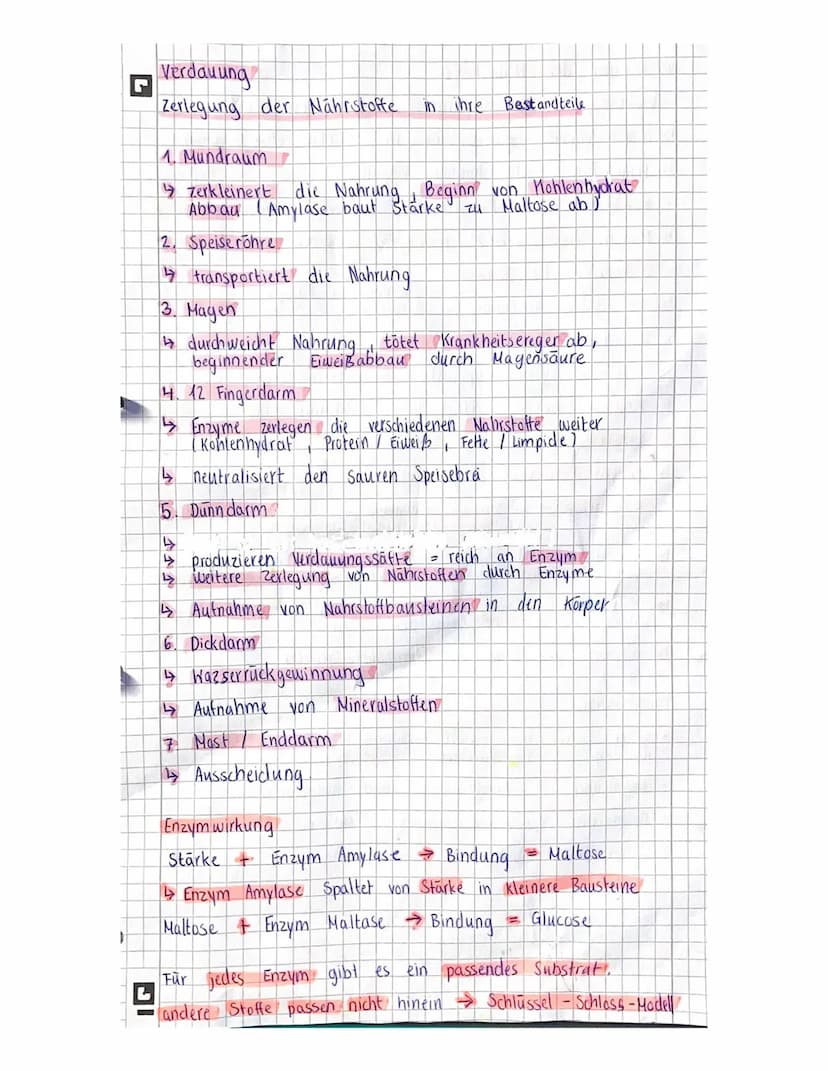 Verdauung
Zerlegung der Nährstoffe in ihre Bestandteile
1. Mundraum
↳ zerkleinert die Nahrung, Beginn von Kohlenhydrat
Abbau (Amylase baut Stärke zu Maltose ab)
2. Speiseröhre
↳ transportiert die Nahrung
3. Magen
↳ durchweicht Nahrung, tötet Krankheitsereger ab,
beginnender Eiweißabbau durch Magensäure
4. 12 Fingerdarm
↳ Enzyme zerlegen die verschiedenen Nahrstoffe weiter
(Kohlenhydrat, Protein / Eiweiß, Fette / Limpide)
↳ neutralisiert den sauren Speisebrei
5. Dünndarm
↳
↳ produzieren Verdauungssäfte = reich an Enzym
↳ weitere Zerlegung von Nährstoffen durch Enzyme
↳ Aufnahme von Nahrstoffbausteinen in den Körper
6. Dickdarm
↳ Wasserrückgewinnung
↳ Aufnahme von Mineralstoffen
7. Mast / Enddarm
↳ Ausscheidung
Enzymwirkung
Stärke + Enzym Amylase → Bindung = Maltose
↳ Enzym Amylase Spaltet von Stärke in kleinere Bausteine
Maltose + Enzym Maltase → Bindung = Glucose
Für jedes Enzym gibt es ein passendes Substrat.
andere Stoffe passen nicht hinein → Schlüssel - Schloss - Modell